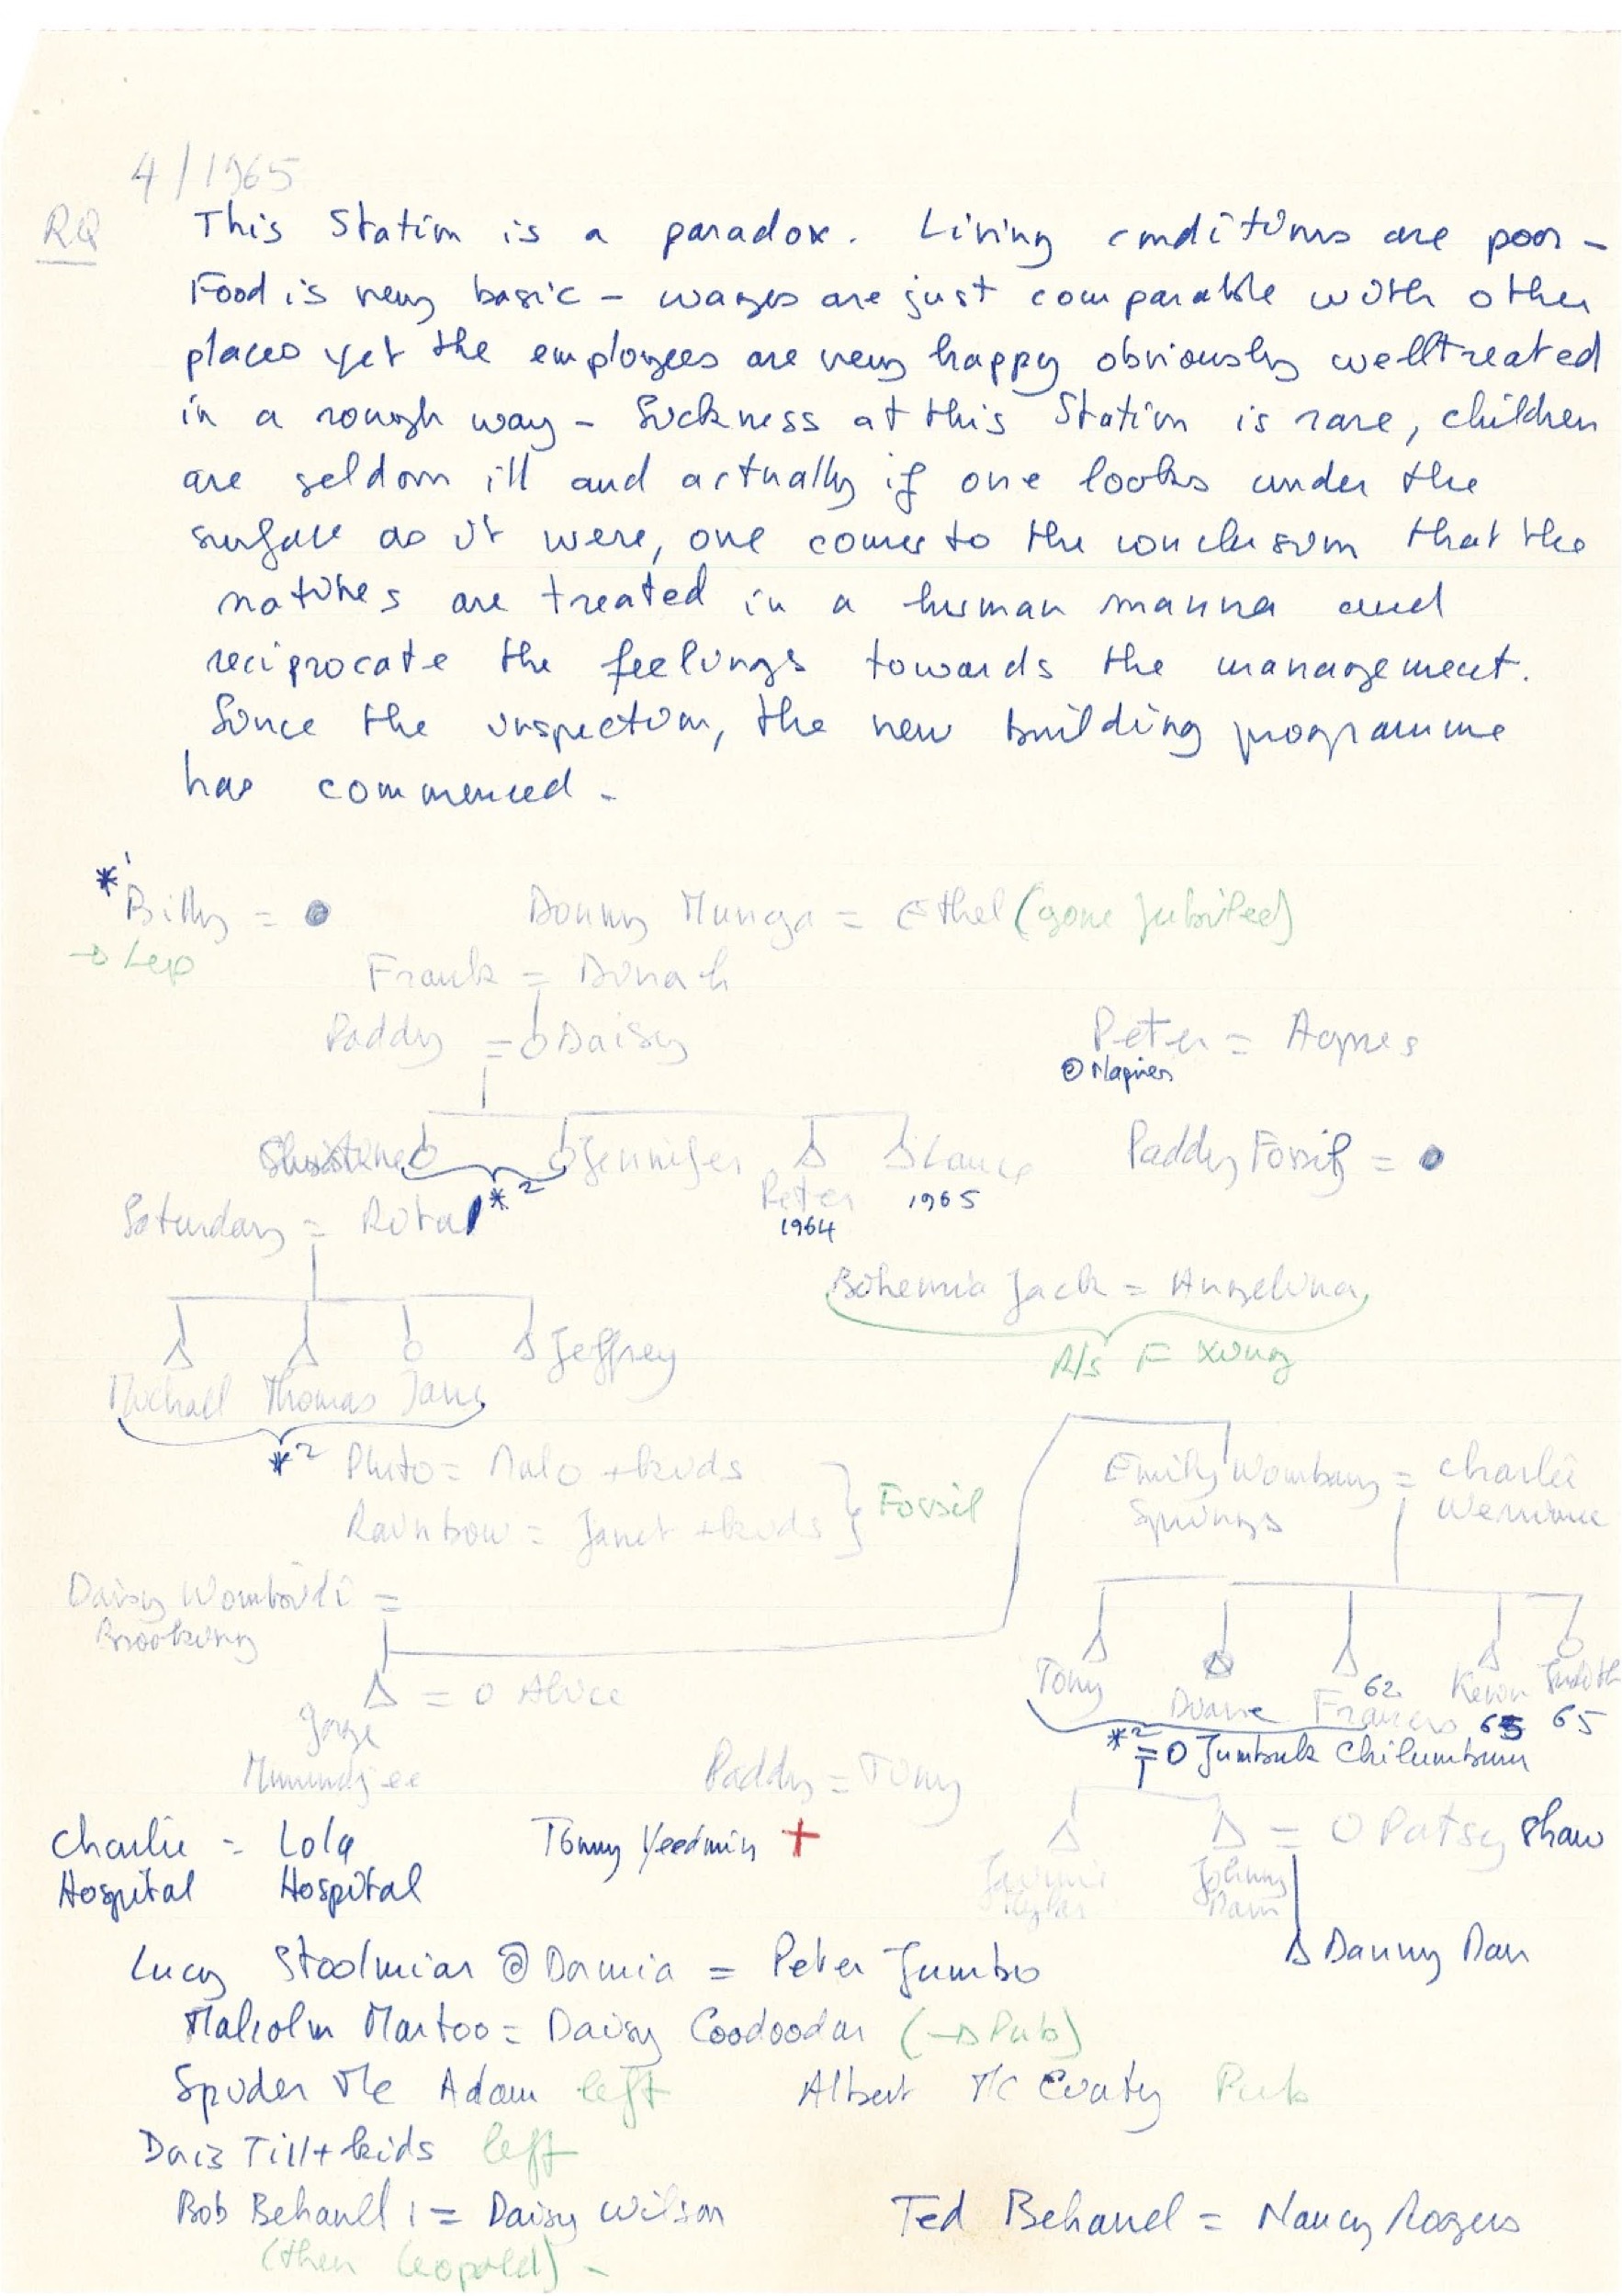 4/1965
RQ
This Station is a paradox. Living conditions are poor -
Food is very basic - wages are just comparable with other
places yet the employees are very happy obviously welltreated
in a rough way - Sickness at this Station is rare, children
are seldom ill and actually if one looks under the
surface as it were, one comes to the conclusion that the
natives are treated in a human manna and
reciprocate the feelings towards the management.
Since the inspection, the new building programme
has commenced -
*1
Billy = Donny Munga = Ethel (gone Jubilee)
→ Leo
Frank = Dinah
Paddy = O Daisy Peter = Agnes
@ Napier
Jennifer Lance Paddy Fossil =
*2 Peter 1965
1964
Saturday = Rita
Bohemia Jack = Angelina
Jeffrey R/S F Xing
Michael Thomas Jane
*2 Pluto = Malo + kids
Rainbow = Janet + kids } Fossil
Emily Wombany = Charlie
Springs
Daisy
Brooking
Δ = O Alice
Tony Francis 62 Kevin 65 Judith 65
*2
= O Jumbuk Chilumbum
Paddy = Tony
Charlie = Lola Tommy Yeedmin +
Hospital Hospital
Δ = O Patsy Shaw
Johnny
Δ Danny Dan
Lucy Stoolmiar @ Damia = Peter Jumbo
Malcolm Martoo = Daisy Coodoodar (→ Pub)
Spider Mc Adam left Albert Mc Evaty Pub
Till + kids left
Bob Behanll = Daisy Wilson Ted Behanel = Nancy Rogers
(then Leopold) -